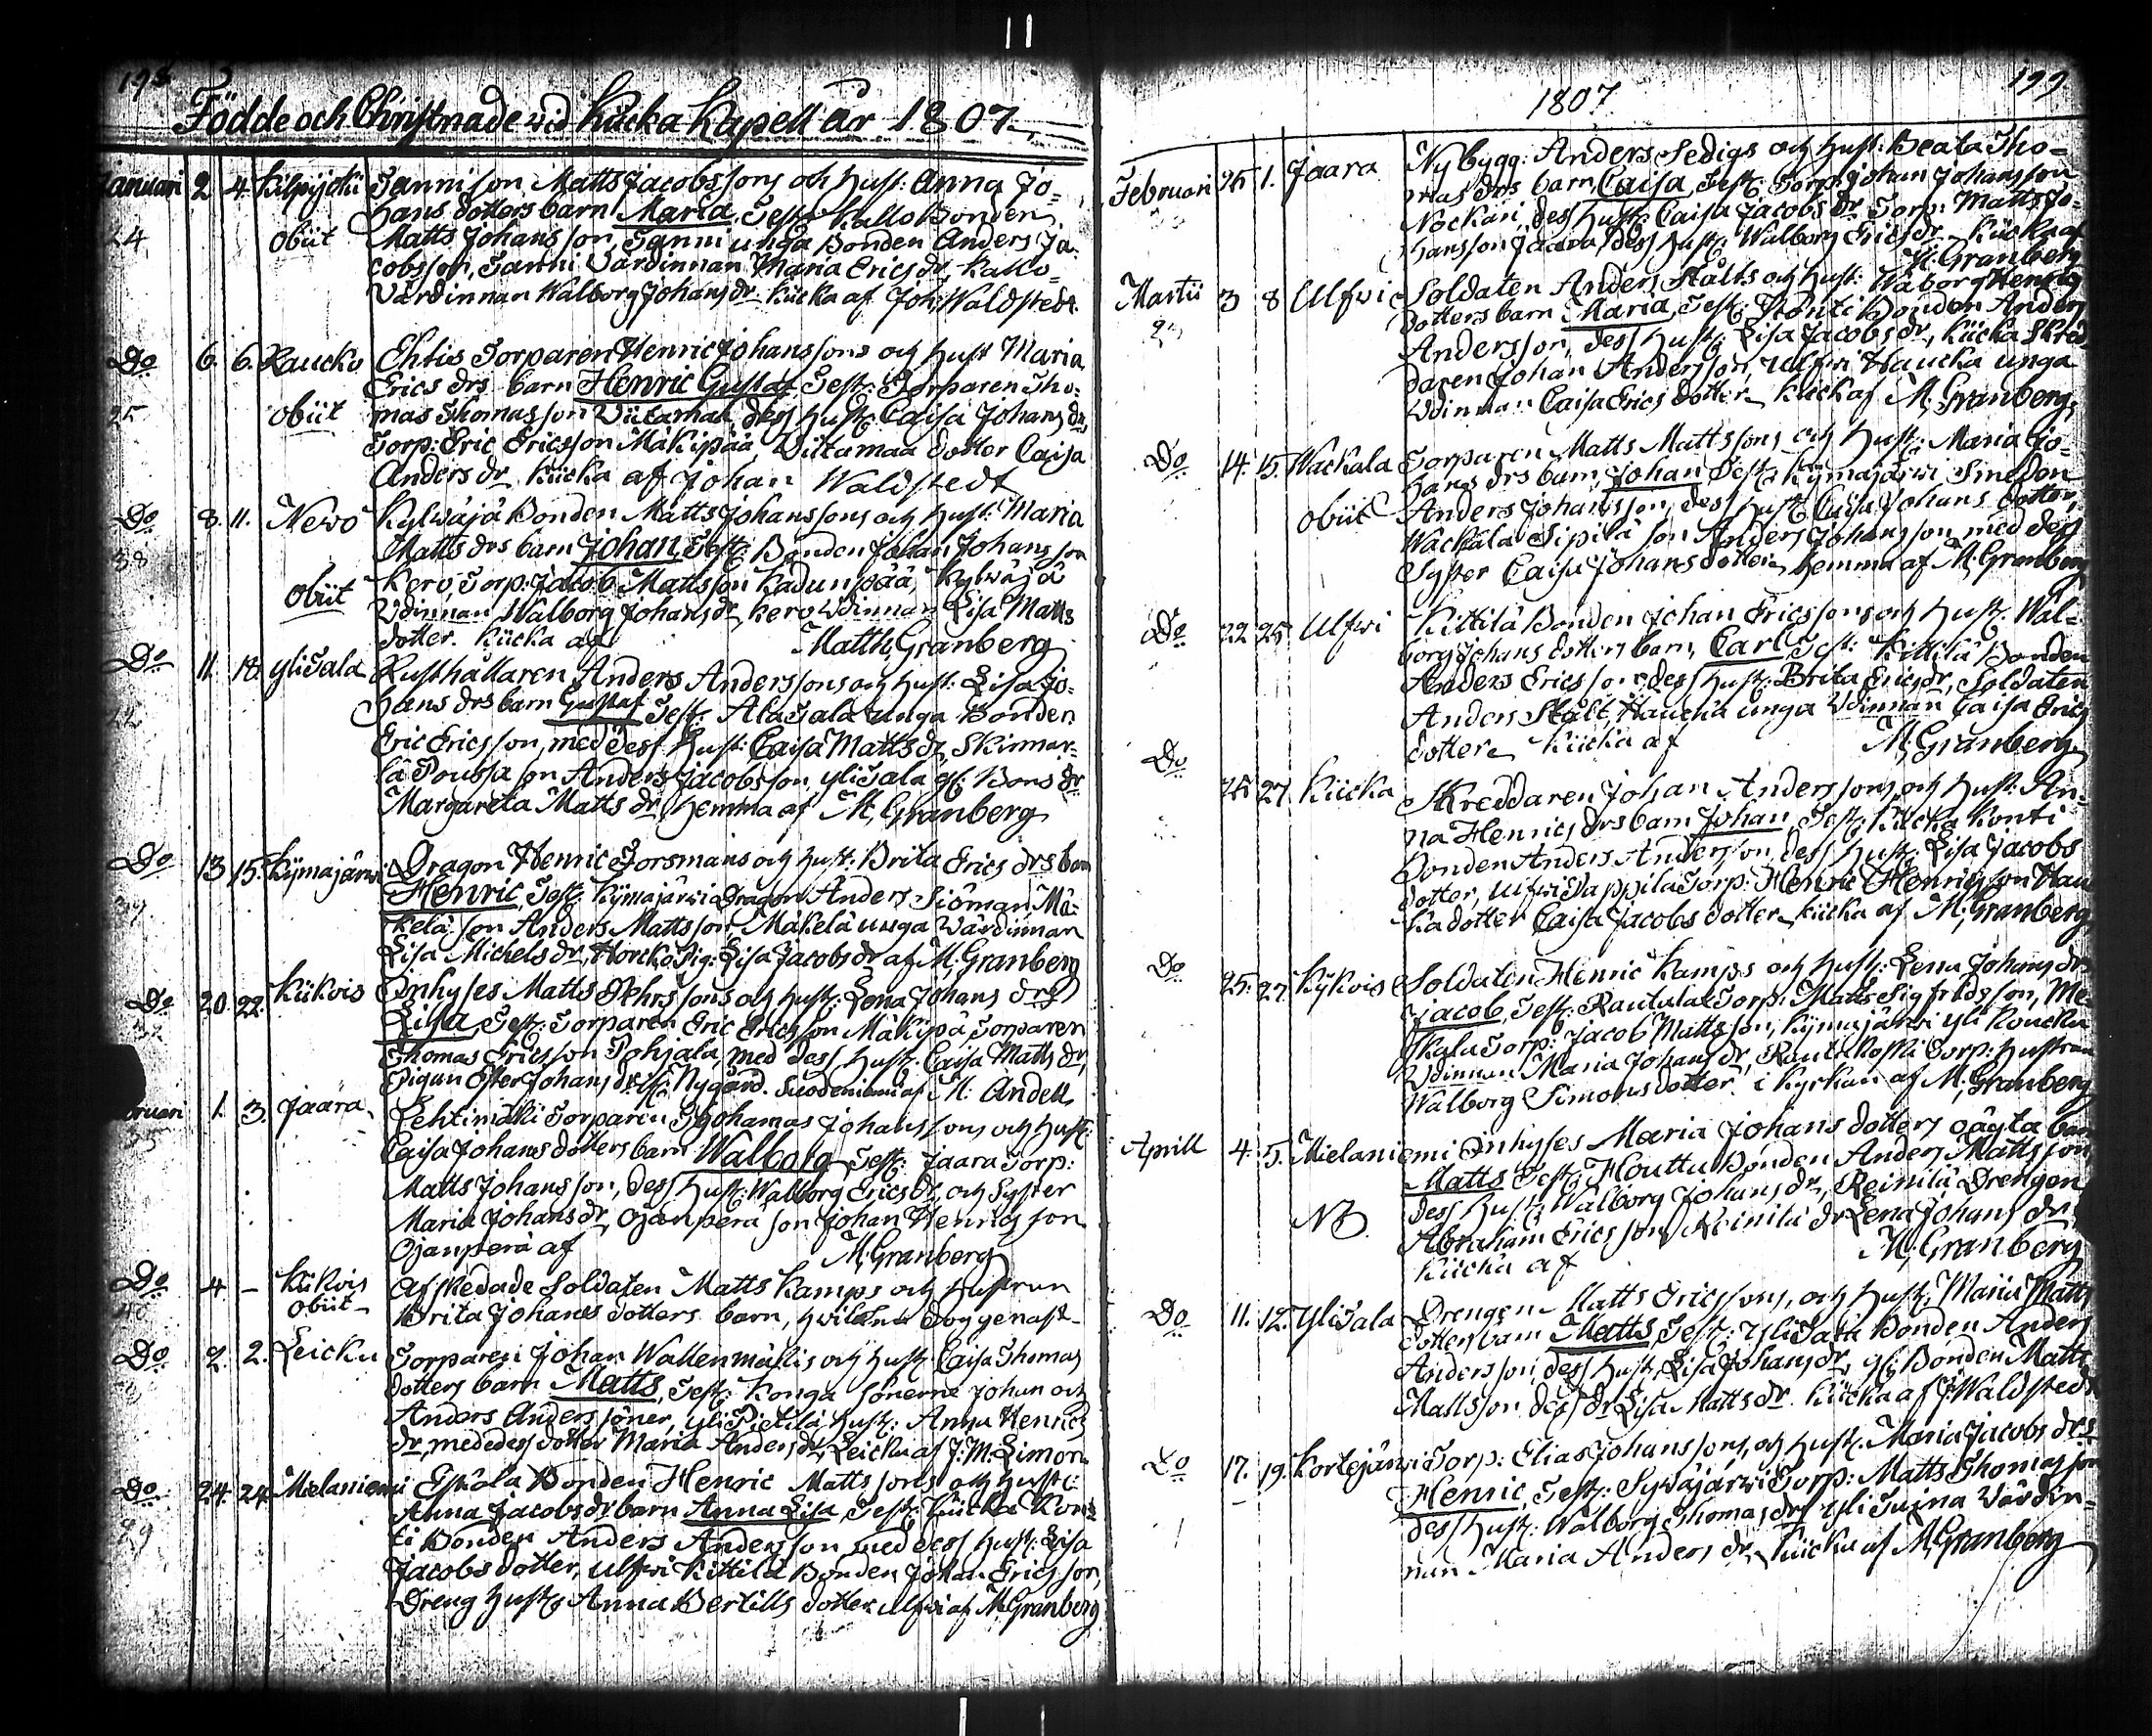 198
Födde och Christnade vid Kiicka Kapell år 1807
Januari 2 4. Kilpijoki Sannison Matts Jacobssons och Hust: Anna Jo=
hans dotters barn Maria, Test: Kallo Bonden
24 obiit Matts Johansson, Sanni unga Bonden Anders Ja=
cobsson, Sanni Värdinnan Maria Erics dr, Kallo=
Värdinnan Walborg Johans dr Kiicka af Joh: Waldstedt
Do 6. 6. Raucko Ehtis Torparen Henric Johanssons och Hust Maria
Erics drs barn Henric Gustaf Test: Torparen Tho=
25 obiit mas Thomasson Viitamaa dess Hust: Caisa Johans dr,
Torp: Eric Ericsson Mäkipää, Viitamaa dotter Caisa
Anders dr Kiicka af Johan Waldstedt
Do 8. 11. Newo Kylwäjä Bonden Matts Johanssons och Hust: Maria
Matts drs barn Johan, Test: Bonden Johan Johansson
38 Kero, Torp: Jacob Mattsson Kadunpää, Kylwäjä
obiit Vdinnan Walborg Johans dr, Kero Vdinnan Lisa Matts
dotter. Kiicka af Matth. Granberg
Do 11. 18. YliSala Rusthållaren Anders Anderssons och Hust: Lisa Jo=
hans drs barn Gustaf Test: AlaSala unga Bonden
Eric Ericsson, med dess Hust: Caisa Matts dr, Skinnar=
lä Poussa son Anders Jacobsson, YliSala gl: Bons dr
Margareta Matts dr, hemma af M. Granberg
Do 13 15. Kijmajärwi Dragon Henric Forsmans och Hust: Brita Erics drs barn
Henric, Test: Kijmajärwi Dragon Anders Siöman, Mä=
kelä son Anders Mattsson, Mäkelä unga Värdinnan
Lisa Michels dr, Horcko Pig: Lisa Jacobs dr af M. Granberg
Do 20. 22. Kiikois Inhyses Matts Pehrssons och Hust: Lena Johans drs
Lisa Test: Torparen Eric Ericsson Mäkipä Torparen
Thomas Ericsson Pohjala, med dess Hust: Caisa Matts dr,
Pigan Ester Johans dr. Nygård. Suodeniemi af M: Andell
Februari 1. 3. Jaara Lehtimäki Torparen Thomas Johanssons och Hust:
Caisa Johans dotters barn Walborg Test: Jaara Torp:
Matts Johansson, dess Hust: Walborg Erics dr, och Syster
Maria Johans dr, Ojanperä son Johan Henricsson
Ojanperä af M. Granberg
Do 4 - Kiikois Afskedade Soldaten Matts Kamps och Hustrun
40 obiit Brita Johans dotters barn, hvilken
Do 2. 2. Leicku Torparen Johan Wallenmäkis och Hust: Caisa Thomas
dotters barn Matts, Test: Konga Sönerne Johan och
Anders Anderssöner, YliPietilä Hust: Anna Henrics
dr, med dess dotter Maria Anders dr, Leicku af J. M. Limon
Do 24. 24. Mielaniemi Eskola Bonden Henric Mattssons och Hust:
Anna Jacobs dr barn Anna Lisa, Test: Kiicka Kon=
29 ti Bonden Anders Andersson med dess Hust: Lisa
Jacobs dotter, Ulfwi Kittilä Bonden Johan Ericsson,
Dreng Hust: Anna Bertills dotter Ulfwi af M. Granberg
199
1807
Februari 25 1. Jaara Nybygg: Anders Sedigs och Hust: Beata Tho=
mas drs barn, Caisa, Test: Torp: Johan Johansson
Nockari, dess Hust: Caisa Jacobs dr Torp: Matts Jo=
hansson Jaara, dess Hust: Walborg Erics dr Kiicka af
M. Granberg
Martii 3 8 Ulfwi Soldaten Anders Stålts och Hust: Wålborg Henrics
dotters barn Maria, Test: Konti Bonden Anders
Andersson, dess Hust: Lisa Jacobs dr, Kiicka Skräd
daren Johan Andersson, Ulfwi Haucka unga
Vdinnan Caisa Erics dotter Kiick af M. Granberg
Do 14. 15. Wackala Torparen Matts Mattssons och Hust: Maria Jo=
hans drs barn, Johan Test: Kijmajärwi Smeden
obiit Anders Johansson, dess Hust: Caisa Johans dotter,
Wackala Sipilä son Anders Johansson med dess
Syster Caisa Johans dotter, hemma af M. Granberg
Do 22 25 Ulfwi Kittilä Bonden Johan Ericssons och Hust: Wal=
borg Johans dotters barn, Carl, Test: Kittilä Bonden
Anders Ericsson, dess Hust: Brita Erics dr, Soldaten
Anders Stålt, Haucka unga Vdinnan Caisa Erics
dotter Kiicka af M. Granberg
Do 25 27. Kiicka Skreddaren Johan Anderssons, och Hust: An=
na Henrics drs barn Johan, Test: Kiicka Konti
Bonden Anders Andersson, dess Hust: Lisa Jacobs
dotter, Ulfwi Vappila Torp: Henric Henricsson Hau
ka dotter Caisa Jacobs dotter, Kiicka af M. Granberg
Do 25. 27. Kijkois Soldaten Henric Kamps och Hust: Lena Johans drs
Jacob, Test: Rautula Torp: Matts Sigfridsson, Me=
skala Torp: Jacob Mattsson, Kijmajärwi Yli Koucku
Vdinnan Maria Johans dr, Rautukoski Torp: Hustrun
Walborg Simons dotter. i Kyrkan af M. Granberg
Aprill 4. 5. Mielaniemi Inhyses Maria Johans dotters oägta barn
Matts Test: Houttu Bonden Anders Mattsson
NB. dess Hust: Walborg Johans dr, Reinilä Drengen
Abraham Ericsson, Reinilä dr Lena Johans dr
Kiicka af M. Granberg
Do 11. 12. YliSala Drengen Matts Ericssons, och Hust: Maria Matts
dotters barn Matts, Test: YliSala Bonden Anders
Andersson, dess Hust: Lisa Johans dr, gl: Bonden Matts
Mattsson dess dr Lisa Matts dr. Kiicka af J: Waldstedt
Do 17. 19. Kortejärwi Torp: Elias Johanssons, och Hust: Maria Jacobs drs
Henric, Test: Sywäjärwi Torp: Matts Thomasson
dess Hust: Walborg Thomas dr, Yli Värdin=
nan Maria Anders dr, Kiicka af M. Granberg